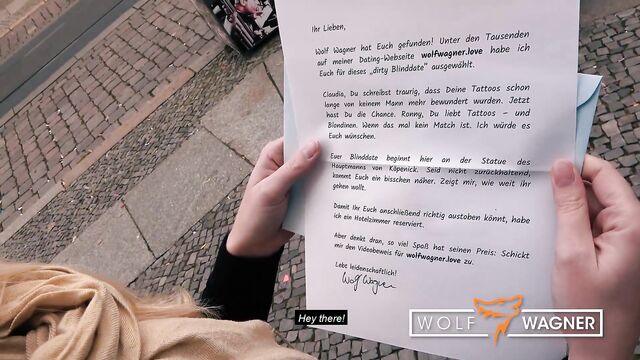 Ihr Lieben,
Wolf Wagner hat Euch gefunden! Unter den Tausenden
auf meiner Dating-Webseite wolfwagner.love habe ich
Euch für dieses „dirty Blinddate" ausgewählt.
Claudia, Du schreibst traurig, dass Deine Tattoos schon
lange von keinem Mann mehr bewundert wurden. Jetzt
hast Du die Chance. Ronny, Du liebst Tattoos – und
Blondinen. Wenn das mal kein Match ist. Ich würde es
Euch wünschen.
Euer Blinddate beginnt hier an der Statue des
Hauptmanns von Köpenick. Seid nicht zurückhaltend,
kommt Euch ein bisschen näher. Zeigt mir, wie weit ihr
gehen wollt.
Damit Ihr Euch anschließend richtig austoben könnt, habe
ich ein Hotelzimmer reserviert.
Aber denkt dran, so viel Spaß hat seinen Preis: Schickt
mir den Videobeweis für wolfwagner.love zu.
Lebt leidenschaftlich!
Wolf Wagner
Hey there!
WOLF WAGNER